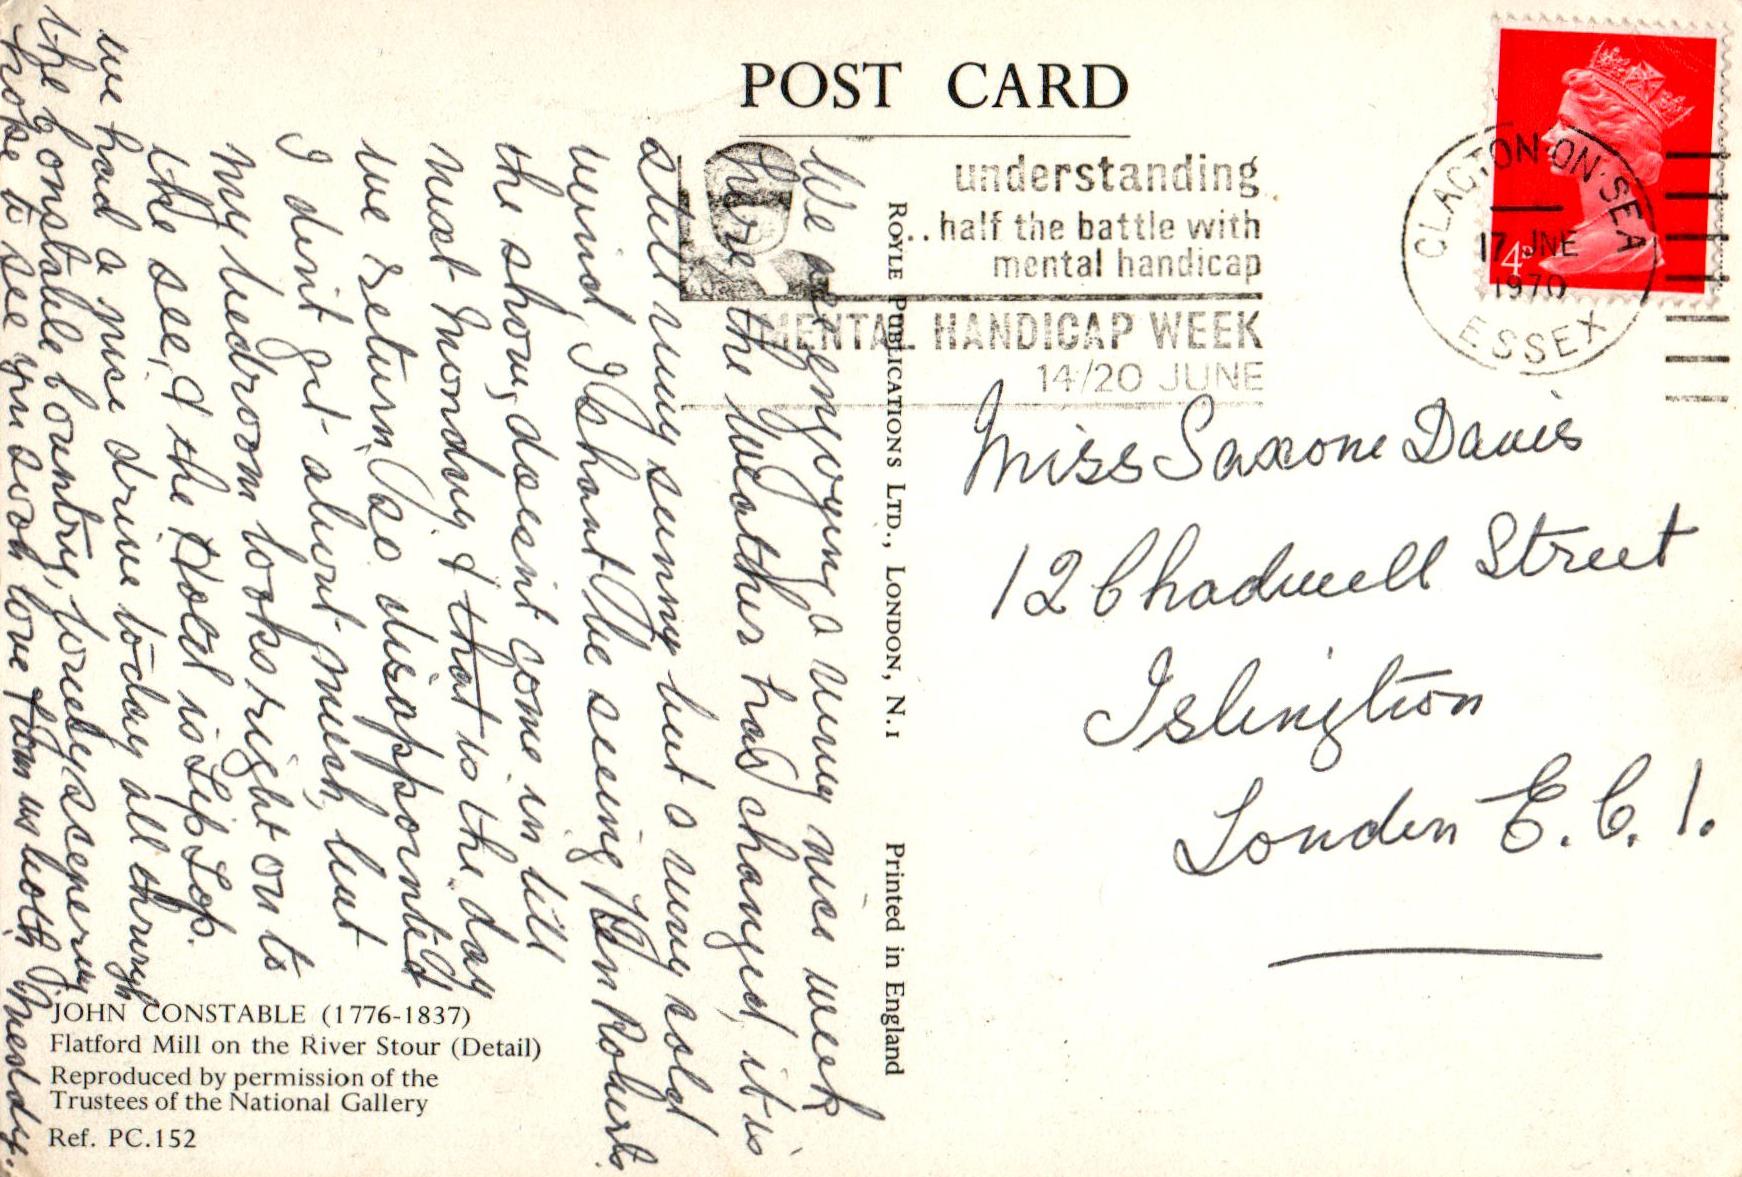 POST CARD
understanding
...half the battle with
mental handicap
MENTAL HANDICAP WEEK
14/20 JUNE
CLACTON-ON-SEA
17 JNE
1970
ESSEX
4P
We are enjoying a very nice week
here the weather has changed, it is
still very sunny but a very cold
wind, I shant be seeing Ken Roberts
the show, doesent come in till
next Monday & that is the day
we return, so disappointed
I dont get about much, but
my bedroom looks right on to
the sea, & the Hotel is Tip Top.
we had a nice drive today all through
the Constable Country, lovely scenery
hope to see you soon love from us both
ROYLE PUBLICATIONS LTD., LONDON, N.1
Printed in England
Miss Saxone Davis
12 Chadwell Street
Islington
London E.C.1.
JOHN CONSTABLE (1776-1837)
Flatford Mill on the River Stour (Detail)
Reproduced by permission of the
Trustees of the National Gallery
Ref. PC.152